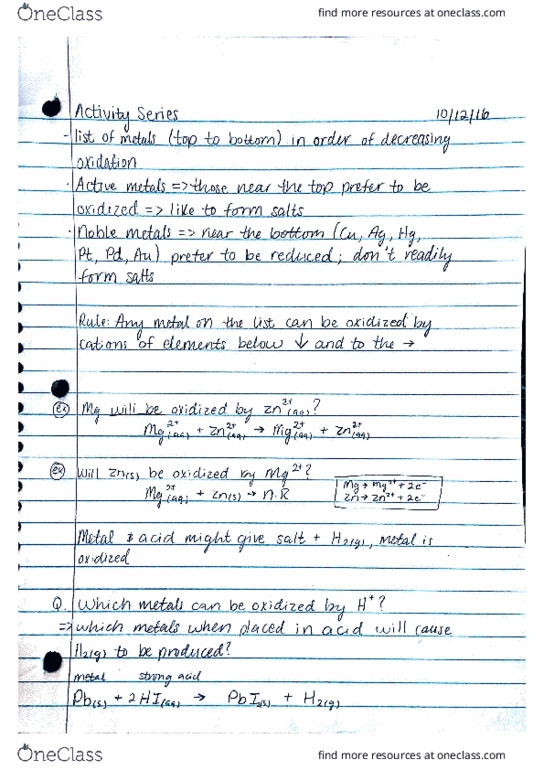 OneClass
find more resources at oneclass.com
Activity Series 10/12/16
- list of metals (top to bottom) in order of decreasing
oxidation
· Active metals => those near the top prefer to be
oxidized => like to form salts
· Noble metals => near the bottom (Cu, Ag, Hg,
Pt, Pd, Au) prefer to be reduced; don't readily
form salts
Rule: Any metal on the list can be oxidized by
cations of elements below ↓ and to the →
ex Mg will be oxidized by Zn²⁺(aq)?
Mg²⁺(aq) + Zn²⁺(aq) → Mg²⁺(aq) + Zn²⁺(aq)
ex Will Zn(s) be oxidized by Mg²⁺?
Mg → Mg²⁺ + 2e⁻
Mg²⁺(aq) + Zn(s) → N.R
Zn → Zn²⁺ + 2e⁻
Metal & acid might give salt + H₂(g), metal is
oxidized
Q. Which metals can be oxidized by H⁺?
=> which metals when placed in acid will cause
H₂(g) to be produced?
metal strong acid
Pb(s) + 2HI(aq) → PbI₂(s) + H₂(g)
OneClass
find more resources at oneclass.com